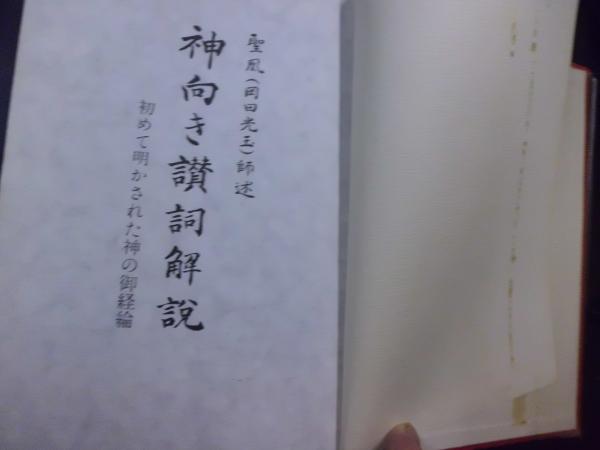 聖凰(岡田光玉)師述
神向き讃詞解説
初めて明かされた神の御経綸